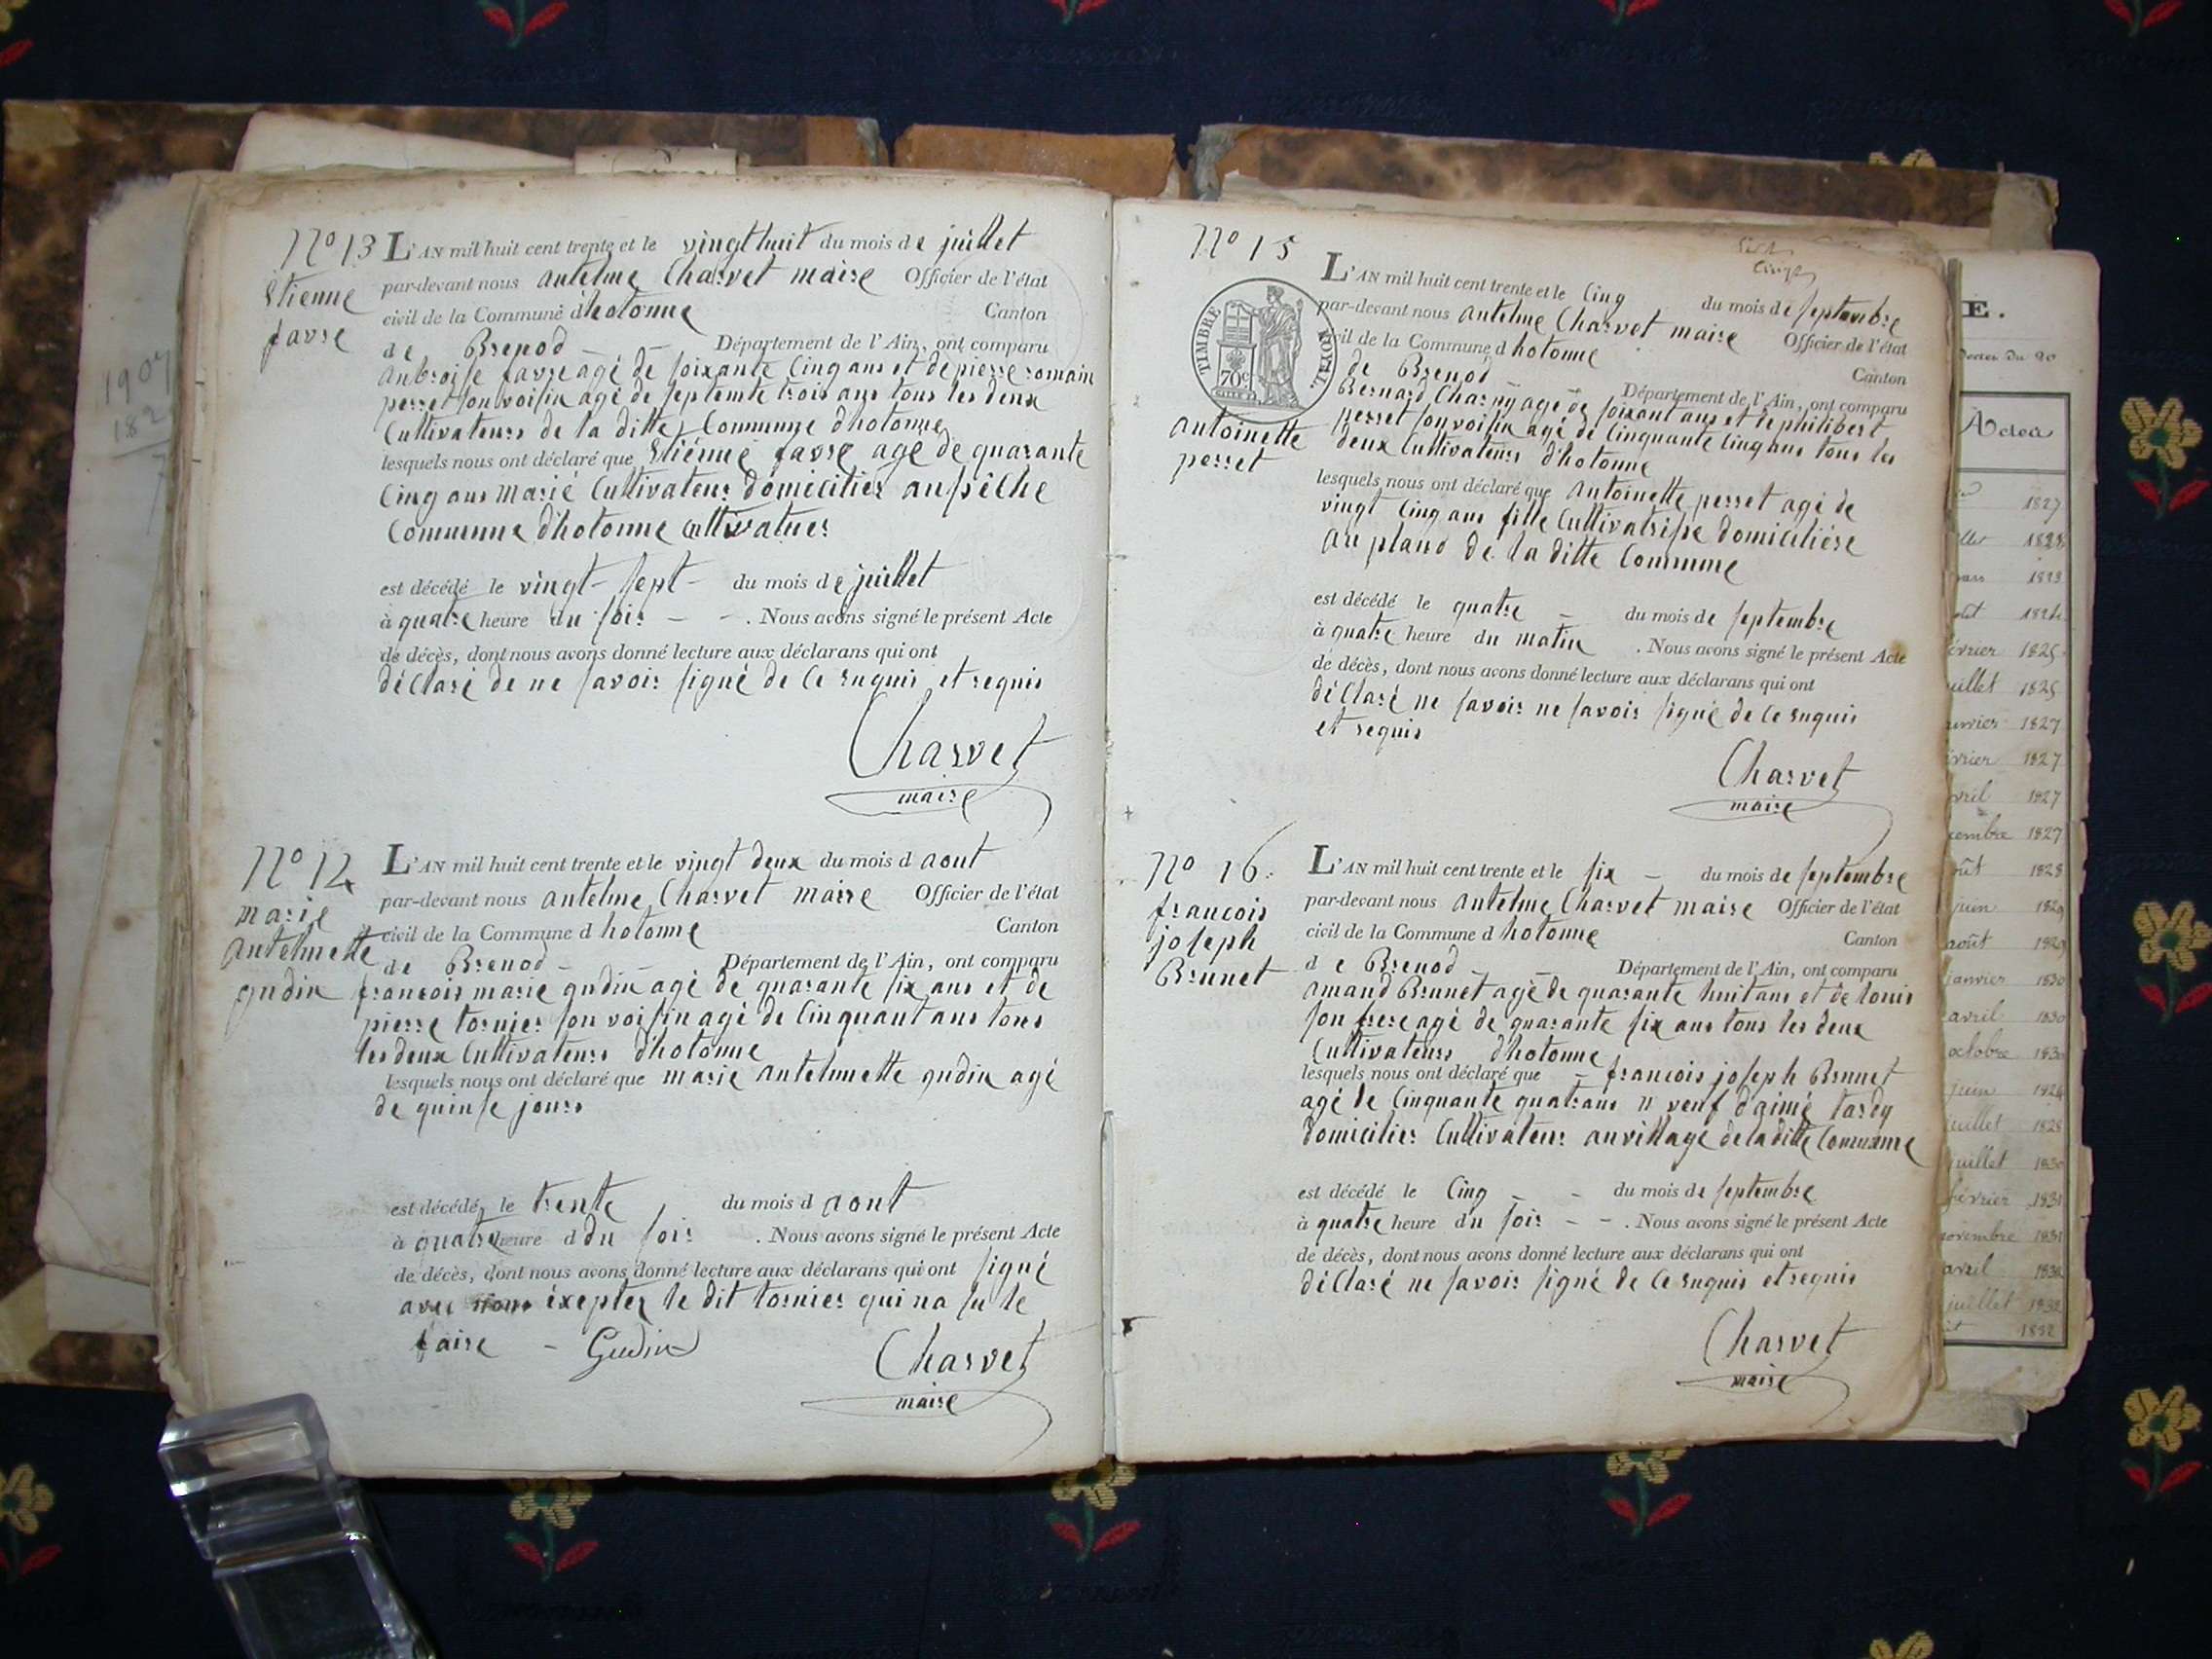 1907
182
7
N° 13
Etienne
favre
L'AN mil huit cent trente et le vingthuit du mois de juillet
par-devant nous antelme Charvet maire Officier de l'état
civil de la Commune d'hotonne Canton
de Brenod — — Département de l'Ain, ont comparu
anbroise favre agé de soixante Cinq ans et de pierre romain
perret son voisin agé de septemte trois ans tous les deux
Cultivateurs de la ditte Commune d'hotonne
lesquels nous ont déclaré que Etiénne favre agé de quarante
Cinq ans marié Cultivateur domicilier anpêche
Commune d'hotonne Cultivatuer
est décédé le vingt-sept - du mois de juillet
à quatre heure du soir — — . Nous avons signé le présent Acte
de décès, dont nous avons donné lecture aux déclarans qui ont
déclaré de ne savoir signé de Ce enquis et requis
Charvet
maire
N° 14
marie
antelmette
gudin
L'AN mil huit cent trente et le vingt deux du mois d aout
par-devant nous antelme Charvet maire Officier de l'état
civil de la Commune d hotonne Canton
de Brenod — — Département de l'Ain, ont comparu
francois marie gudin agé de quarante six ans et de
pierre tornier son voisin agé de Cinquant ans tous
les deux Cultivateurs d'hotonne
lesquels nous ont déclaré que marie antelmette gudin agé
de quinse jours
est décédé le trente du mois d aout
à quatre heure d du soir . Nous avons signé le présent Acte
de décès, dont nous avons donné lecture aux déclarans qui ont signé
avec nous éxepter le dit tornier qui na su le
faire — Gudin
Charvet
maire
N° 15
TIMBRE ROYAL.
70c
antoinette
perret
L'AN mil huit cent trente et le Cinq du mois de septembre
par-devant nous antelme Charvet maire Officier de l'état
civil de la Commune d hotonne Canton
de Brenod Département de l'Ain, ont comparu
Bernard Charny agé de soixant ans et de philibert
perret son voisin agé de Cinquante Cinq ans tous les
deux Cultivateurs d'hotonne
lesquels nous ont déclaré que antoinette perret agé de
vingt Cinq ans fille Cultivatrisse domiciliére
au plano de la ditte Commune
est décédé le quatre — du mois de septembre
à quatre heure du matin . Nous avons signé le présent Acte
de décès, dont nous avons donné lecture aux déclarans qui ont
déclaré ne savoir ne savoir signé de Ce enquis
et requis
Charvet
maire
N° 16.
francois
joseph
Brunet
L'AN mil huit cent trente et le six — du mois de septembre
par-devant nous antelme Charvet maire Officier de l'état
civil de la Commune d hotonne Canton
de Brenod — — Département de l'Ain, ont comparu
amand Brunet agé de quarante huit ans et de louis
son frere agé de quarante six ans tous les deux
Cultivateurs d'hotonne
lesquels nous ont déclaré que — francois joseph Brunet
agé de Cinquante quatrans veuf d'aimé tardy
domicilier Cultivateur anvillage de la ditte Commune
est décédé le Cinq — — du mois de septembre
à quatre heure du soir — — . Nous avons signé le présent Acte
de décès, dont nous avons donné lecture aux déclarans qui ont
déclaré ne savoir signé de Ce enquis et requis
Charvet
maire
E.
Actes
1827
1828
1824
février 1825
juillet 1825
janvier 1827
février 1827
avril 1827
1827
août 1828
juin 1829
août 1829
janvier 1830
avril 1830
octobre 1830
juin
juillet 1828
juillet 1830
février 1831
novembre 1831
avril 1832
juillet 1832
1832